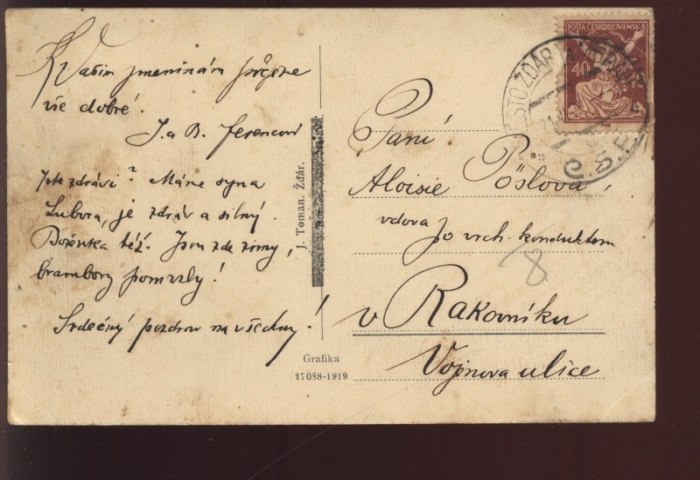 K Vašim jmeninám přejeme
vše dobré!
J. a B. Ferencovi
Jste zdrávi? Máme syna
Lubora, je zdráv a silný.
Boženka též. Jsou zde zimy,
brambory pomrzly!
Srdečný pozdrav na všechny!
J. Toman, Žďár.
Grafika
17088-1919
POŠTA ČESKOSLOVENSKÁ
40
Paní
Aloisie Pöslová,
vdova po vrch. konduktem
8
v Rakovníku
Vojnova ulice